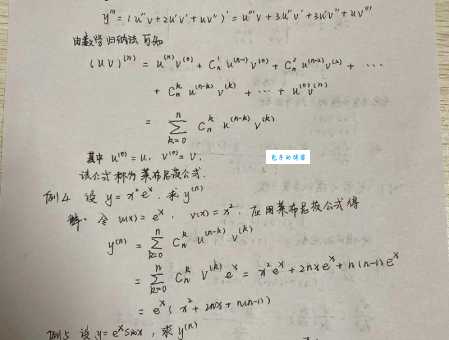 y''' = (u''v + 2u'v' + uv'')' = u'''v + 3u''v' + 3u'v'' + uv'''
由数学归纳法可知
(uv)^{(n)} = u^{(n)}v^{(0)} + C_n^1 u^{(n-1)}v^{(1)} + C_n^2 u^{(n-2)}v^{(2)} + ⋯
+ C_n^k u^{(n-k)}v^{(k)} + ⋯ + u^{(0)}v^{(n)}
= ∑_{k=0}^{n} C_n^k u^{(n-k)} v^{(k)}
其中 u^{(0)} = u, v^{(0)} = v.
该公式称为莱布尼茨公式.
例4 设 y = x^2 e^x, 求 y^{(n)}
解: 令 u(x) = e^x, v(x) = x^2, 应用莱布尼茨公式得
y^{(n)} = ∑_{k=0}^{n} C_n^k u^{(n-k)} v^{(k)}
= ∑_{k=0}^{n} C_n^k v^{(k)} e^x = x^2 e^x + 2nx e^x + n(n-1) e^x
= e^x (x^2 + 2nx + n(n-1))
例5 设 y = e^x sinx, 求 y^{(n)}